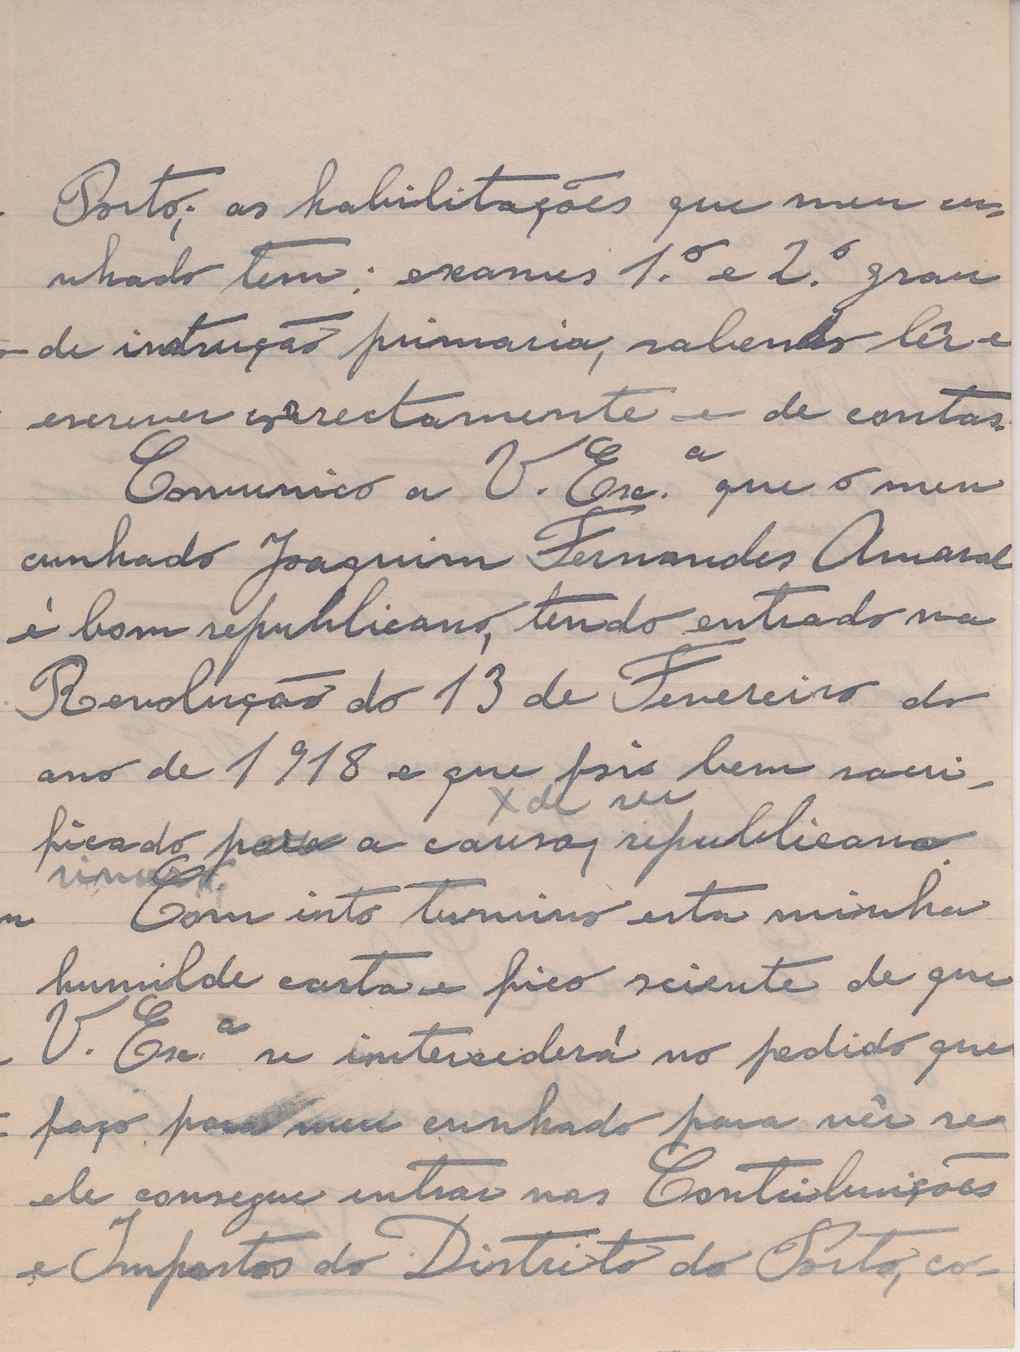 Porto; as habilitações que meu cu-
nhado tem: exames 1.º e 2.º grau
de instrução primaria, sabendo lêr e
escrever correctamente e de contas.
Comunico a V. Ex.ª que o meu
cunhado Joaquim Fernandes Amaral
é bom republicano, tendo entrado na
Revolução do 13 de Fevereiro do
ano de 1918 e que foi bem sacri-
X de ser
ficado para a causa, republicana.
Com isto termino esta minha
humilde carta e fico sciente de que
V. Ex.ª se intercederá no pedido que
faço para meu cunhado para vêr se
ele consegue entrar nas Contribuições
e Impostos do Distrito do Porto, co-